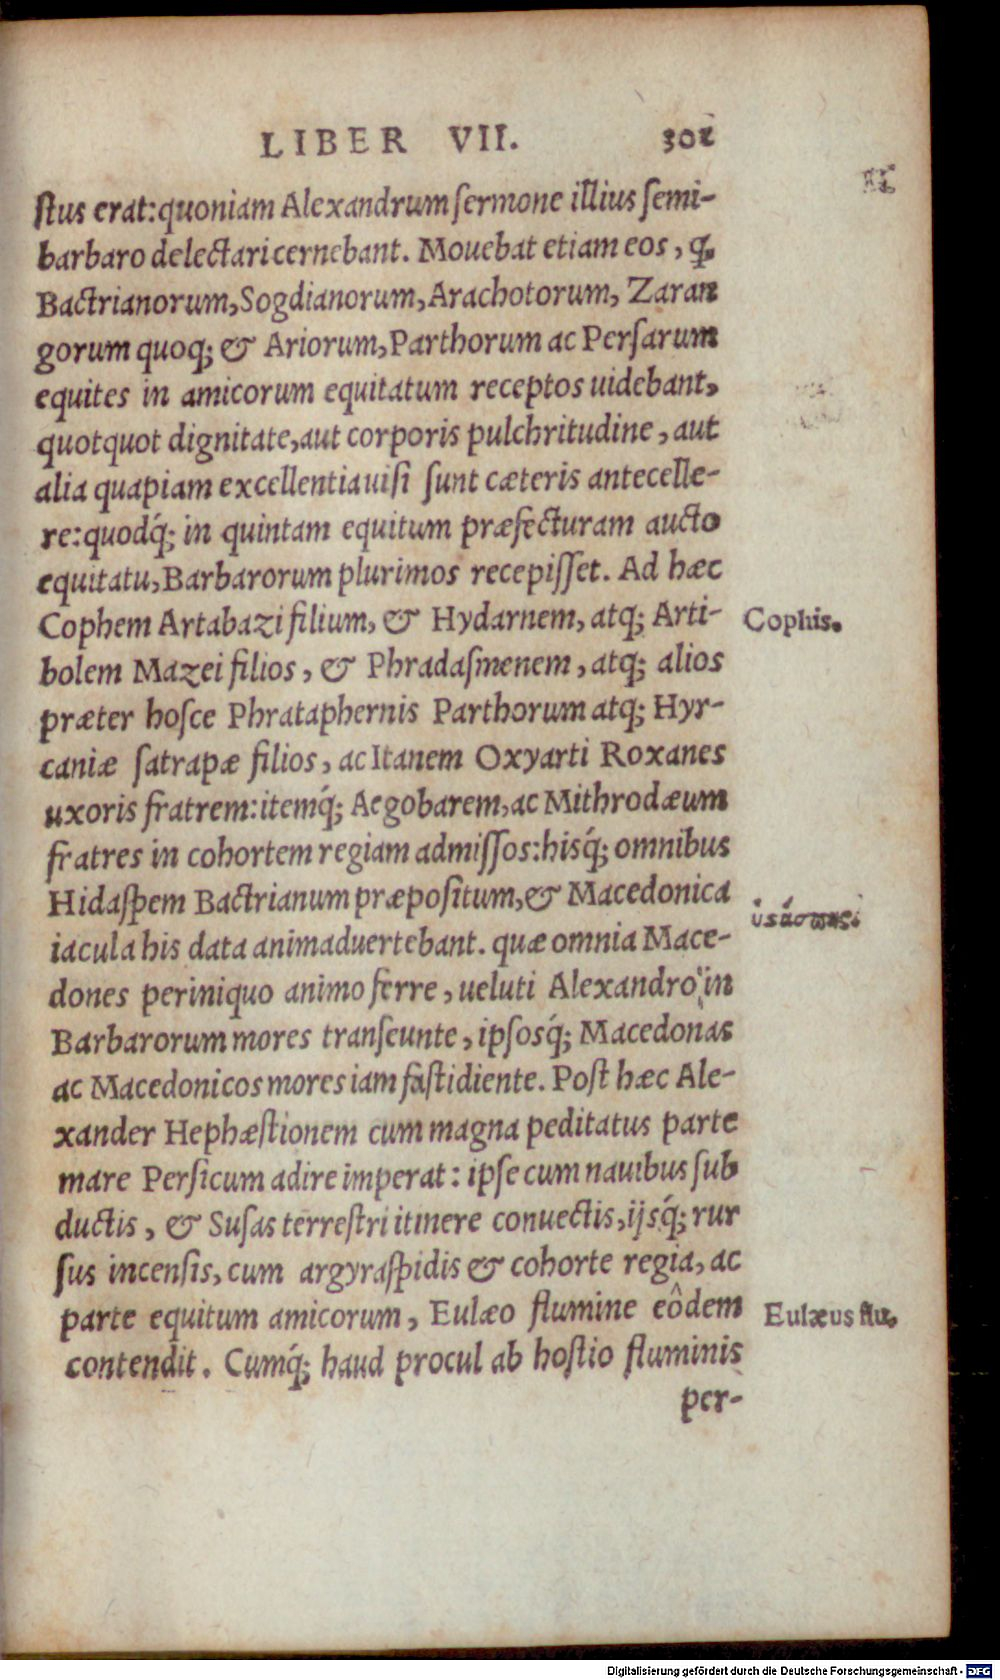 LIBER VII. 301
ſtus erat: quoniam Alexandrum ſermone illius ſemi-
barbaro delectari cernebant. Mouebat etiam eos, ꝙ
Bactrianorum, Sogdianorum, Arachotorum, Zaran
gorum quoq; & Ariorum, Parthorum ac Perſarum
equites in amicorum equitatum receptos uidebant,
quotquot dignitate, aut corporis pulchritudine, aut
alia quapiam excellentia uiſi ſunt cæteris antecelle-
re: quodq́; in quintam equitum præfecturam aucto
equitatu, Barbarorum plurimos recepiſſet. Ad hæc
Cophem Artabazi filium, & Hydarnem, atq; Arti-
Cophis.
bolem Mazei filios, & Phradaſmenem, atq; alios
præter hoſce Phrataphernis Parthorum atq; Hyr-
caniæ ſatrapæ filios, ac Itanem Oxyarti Roxanes
uxoris fratrem: itemq́; Aegobarem, ac Mithrodæum
fratres in cohortem regiam admiſſos: hisq́; omnibus
Hidaſpem Bactrianum præpoſitum, & Macedonica
iacula his data animaduertebant. quæ omnia Mace-
dones periniquo animo ferre, ueluti Alexandro in
Barbarorum mores tranſeunte, ipſosq́; Macedonas
ac Macedonicos mores iam faſtidiente. Poſt hæc Ale-
xander Hephæſtionem cum magna peditatus parte
mare Perſicum adire imperat: ipſe cum nauibus ſub
ductis, & Suſas terreſtri itinere conuectis, ijsq́; rur
ſus incenſis, cum argyraſpidis & cohorte regia, ac
parte equitum amicorum, Eulæo flumine eôdem
Eulæus flu.
contendit. Cumq́; haud procul ab hoſtio fluminis
per-
Digitalisierung gefördert durch die Deutsche Forschungsgemeinschaft - DFG